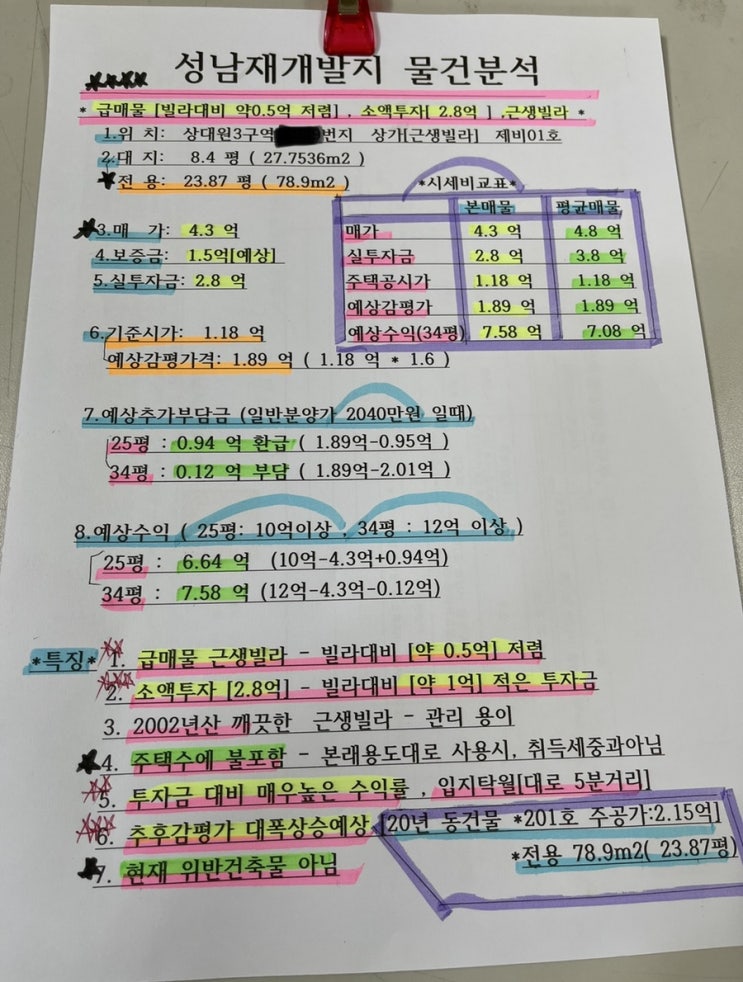 성남재개발지 물건분석
* 급매물 [빌라대비 약0.5억 저렴] , 소액투자[ 2.8억 ] ,근생빌라 *
1.위 치: 상대원3구역 번지 상가[근생빌라] 제비01호
2.대 지: 8.4 평 ( 27.7536m2 )
전 용: 23.87 평 ( 78.9m2 )
*시세비교표*
본매물 평균매물
매가 4.3 억 4.8 억
실투자금 2.8 억 3.8 억
주택공시가 1.18 억 1.18 억
예상감평가 1.89 억 1.89 억
예상수익(34평) 7.58 억 7.08 억
3.매 가: 4.3 억
4.보증금: 1.5억[예상]
5.실투자금: 2.8 억
6.기준시가: 1.18 억
예상감평가격: 1.89 억 ( 1.18 억 * 1.6 )
7.예상추가부담금 (일반분양가 2040만원 일때)
25평 : 0.94 억 환급 ( 1.89억-0.95억 )
34평 : 0.12 억 부담 ( 1.89억-2.01억 )
8.예상수익 ( 25평: 10억이상 , 34평 : 12억 이상 )
25평 : 6.64 억 (10억-4.3억+0.94억)
34평 : 7.58 억 (12억-4.3억-0.12억)
*특징*
1. 급매물 근생빌라 - 빌라대비 [약 0.5억] 저렴
2. 소액투자 [2.8억] - 빌라대비 [약 1억] 적은 투자금
3. 2002년산 깨끗한 근생빌라 - 관리 용이
4. 주택수에 불포함 - 본래용도대로 사용시, 취득세중과아님
5. 투자금 대비 매우높은 수익률 , 입지탁월[대로 5분거리]
6. 추후감평가 대폭상승예상 [20년 동건물 *201호 주공가:2.15억]
*전용 78.9m2( 23.87평)
7. 현재 위반건축물 아님